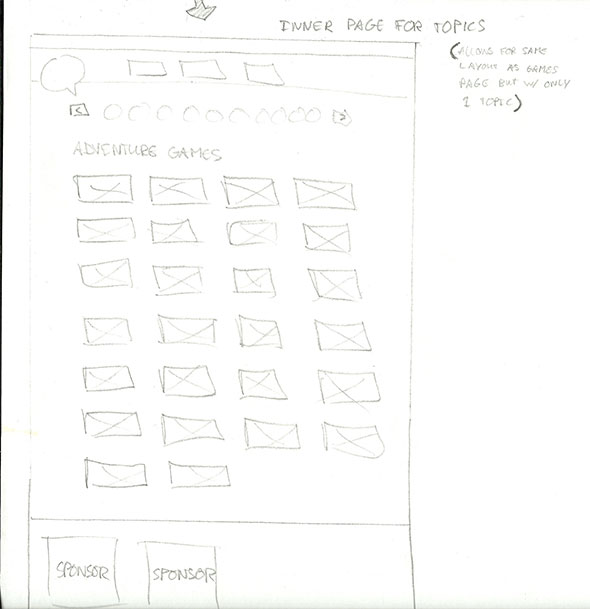 INNER PAGE FOR TOPICS
(ALLOWS FOR SAME
LAYOUT AS GAMES
PAGE BUT W/ ONLY
1 TOPIC)
< >
ADVENTURE GAMES
SPONSOR SPONSOR